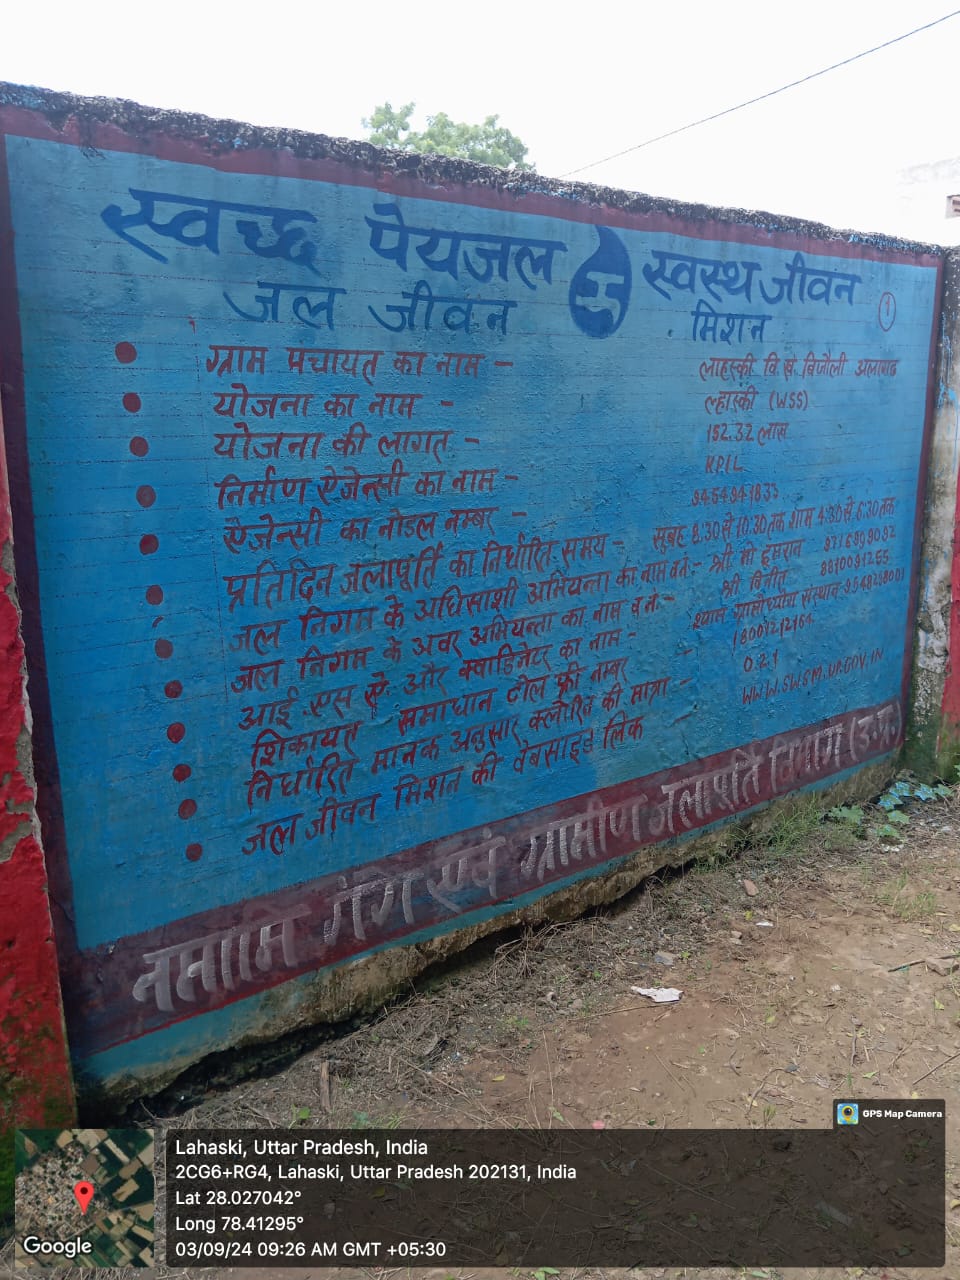 स्वच्छ पेयजल स्वस्थ जीवन
जल जीवन मिशन
1
ग्राम पंचायत का नाम - लाहस्की वि. खं. बिजौली अलीगढ़
योजना का नाम - ल्हास्की (WSS)
योजना की लागत - 152.32 लाख
निर्माण ऐजेन्सी का नाम - KPIL
ऐजेन्सी का नोडल नम्बर - 9454941833
प्रतिदिन जलापूर्ति का निर्धारित समय - सुबह 8:30 से 10:30 तक शाम 4:30 से 6:30 तक
जल निगम के अधिसाशी अभियन्ता का नाम व नं. - श्री मो इमरान
जल निगम के अवर अभियन्ता का नाम व नं. - श्री विनीत
आई .एस ऐ. और क्वाडिनेटर का नाम -
शिकायत समाधान टोल फ्री नम्बर - 18001212164
निर्धारित मानक अनुसार क्लोरिन की मात्रा - 0.21
जल जीवन मिशन की वेबसाइड लिंक WWW.SWSM.UP.GOV.IN
नमामि गंगे एवं ग्रामीण जलापूर्ति विभाग (उ.प्र.)
GPS Map Camera
Lahaski, Uttar Pradesh, India
2CG6+RG4, Lahaski, Uttar Pradesh 202131, India
Lat 28.027042°
Long 78.41295°
03/09/24 09:26 AM GMT +05:30
Google